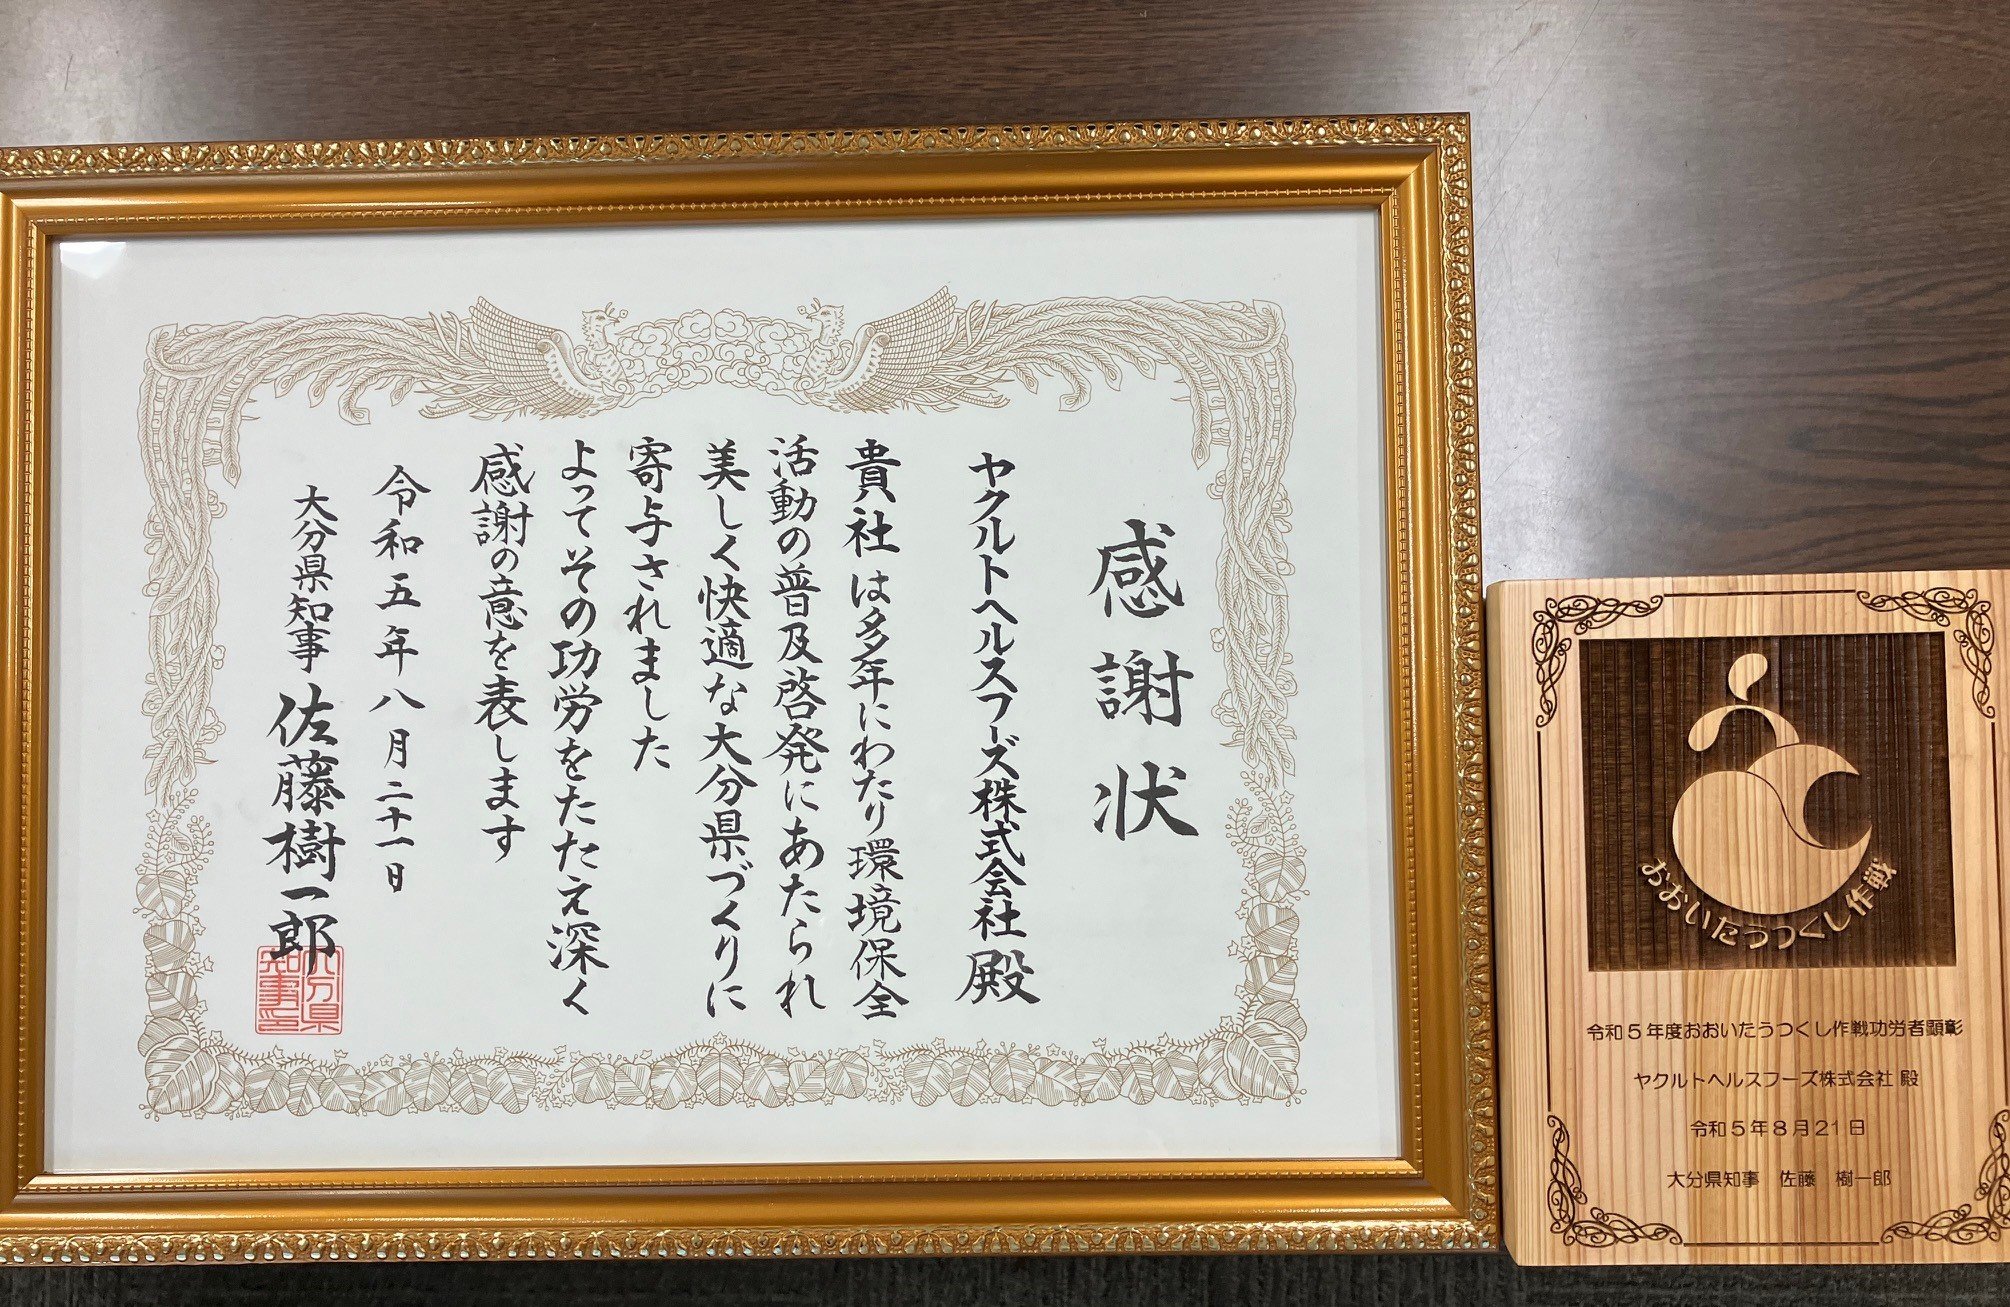 感謝状
ヤクルトヘルスフーズ株式会社殿
貴社は多年にわたり環境保全
活動の普及啓発にあたられ
美しく快適な大分県づくりに
寄与されました
よってその功労をたたえ深く
感謝の意を表します
令和五年八月二十一日
大分県知事 佐藤樹一郎
大分県
知事印
おおいたうつくし作戦
令和5年度おおいたうつくし作戦功労者顕彰
ヤクルトヘルスフーズ株式会社 殿
令和5年8月21日
大分県知事 佐藤 樹一郎